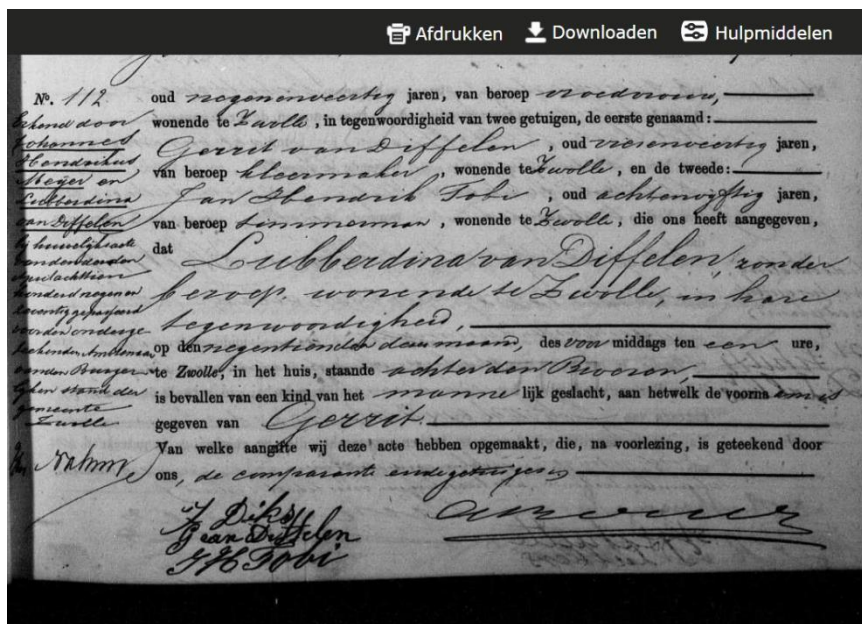 Afdrukken Downloaden Hulpmiddelen
No. 112
Erkend door
Johannes
Hendrikus
Meijer en
Lubberdina
van Diffelen
bij huwelijksacte
van den derden
April achttien
honderd negen en
twintig gepasseerd
voor den onderge
teekenden Ambtenaar
van den Burger
lijken stand der
gemeente
Zwolle
oud negenenveertig jaren, van beroep vroedvrouw,
wonende te Zwolle, in tegenwoordigheid van twee getuigen, de eerste genaamd:
Gerrit van Diffelen, oud vierenveertig jaren,
van beroep kleermaker, wonende te Zwolle, en de tweede:
Jan Hendrik Tobi, oud achtenvyftig jaren,
van beroep timmerman, wonende te Zwolle, die ons heeft aangegeven,
dat Lubberdina van Diffelen, zonder
beroep, wonende te Zwolle, in hare
tegenwoordigheid,
op den negentienden dezer maand, des voor middags ten een ure,
te Zwolle, in het huis, staande achter den Broeren,
is bevallen van een kind van het manne lijk geslacht, aan hetwelk de voorna am is
gegeven van Gerrit.
Van welke aangifte wij deze acte hebben opgemaakt, die, na voorlezing, is geteekend door
ons, de comparante en de getuigen
J Diks
G van Diffelen
J H Tobi